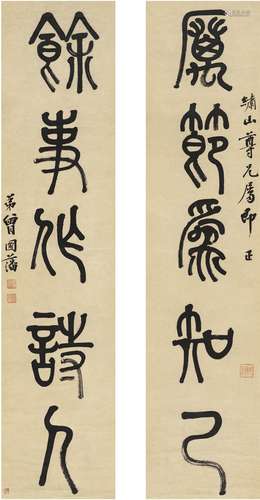 繡山尊兄屬即正
厲節為知己
餘事作詩人
弟曾國藩